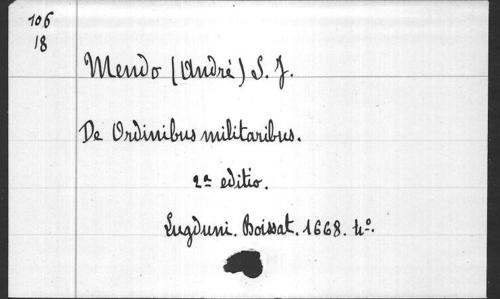 106
18
Mendo (André) S. J.
De Ordinibus militaribus.
2ª editio.
Lugduni. Boissat. 1668. 4º.